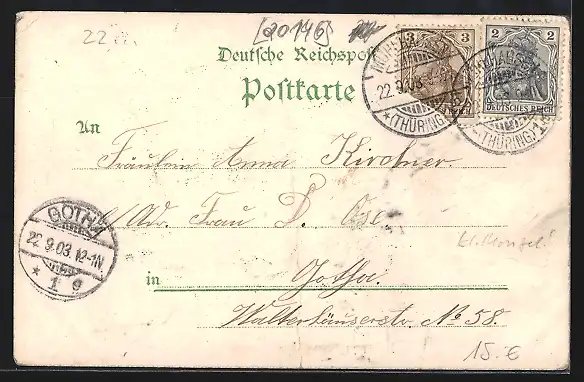 22.
[20146]
Deutsche Reichspost
Postkarte
3 3
2 2
DEUTSCHES REICH
22.9.03.
* (THÜRING.)
(THÜRING.) 1
An
Fräulein Anna Kirchner.
p/Ad. Frau D. Ose
GOTHA
22.9.03. 12-1N.
* 1 g
in Gotha.
Walterhäuserstr. No 58.
15.€